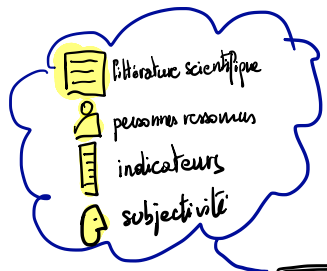 littérature scientifique
personnes ressources
indicateurs
subjectivité